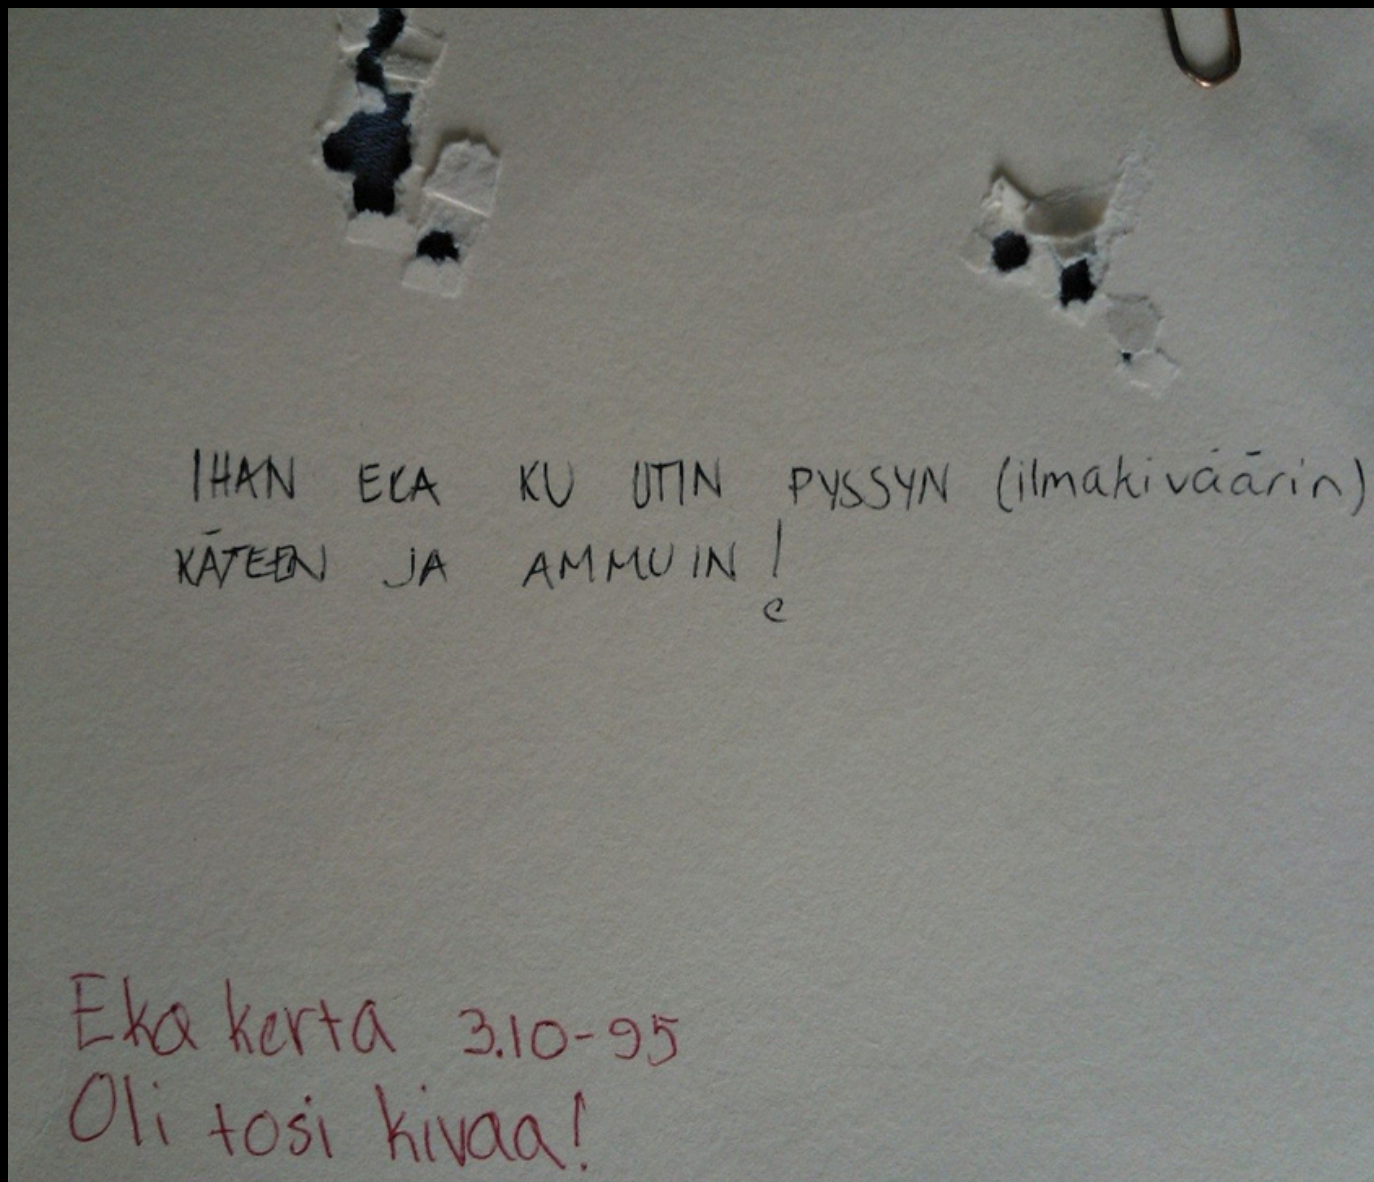 IHAN EKA KU OTIN PYSSYN (ilmakiväärin)
KÄTEEN JA AMMUIN!
Eka kerta 3.10-95
Oli tosi kivaa!